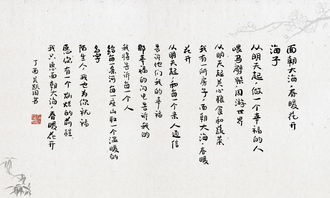 面朝大海,春暖花开
海子
从明天起,做一个幸福的人
喂马劈柴,周游世界
从明天起,关心粮食和蔬菜
我有一所房子,面朝大海,春暖
花开
从明天起,和每一个亲人通信
告诉他们我的幸福
那幸福的闪电告诉我的
我将告诉每一个人
给每一条河每一座山取一个温暖的
名字
陌生人,我也为你祝福
愿你有一个灿烂的前程
我只愿面朝大海,春暖花开
丁酉